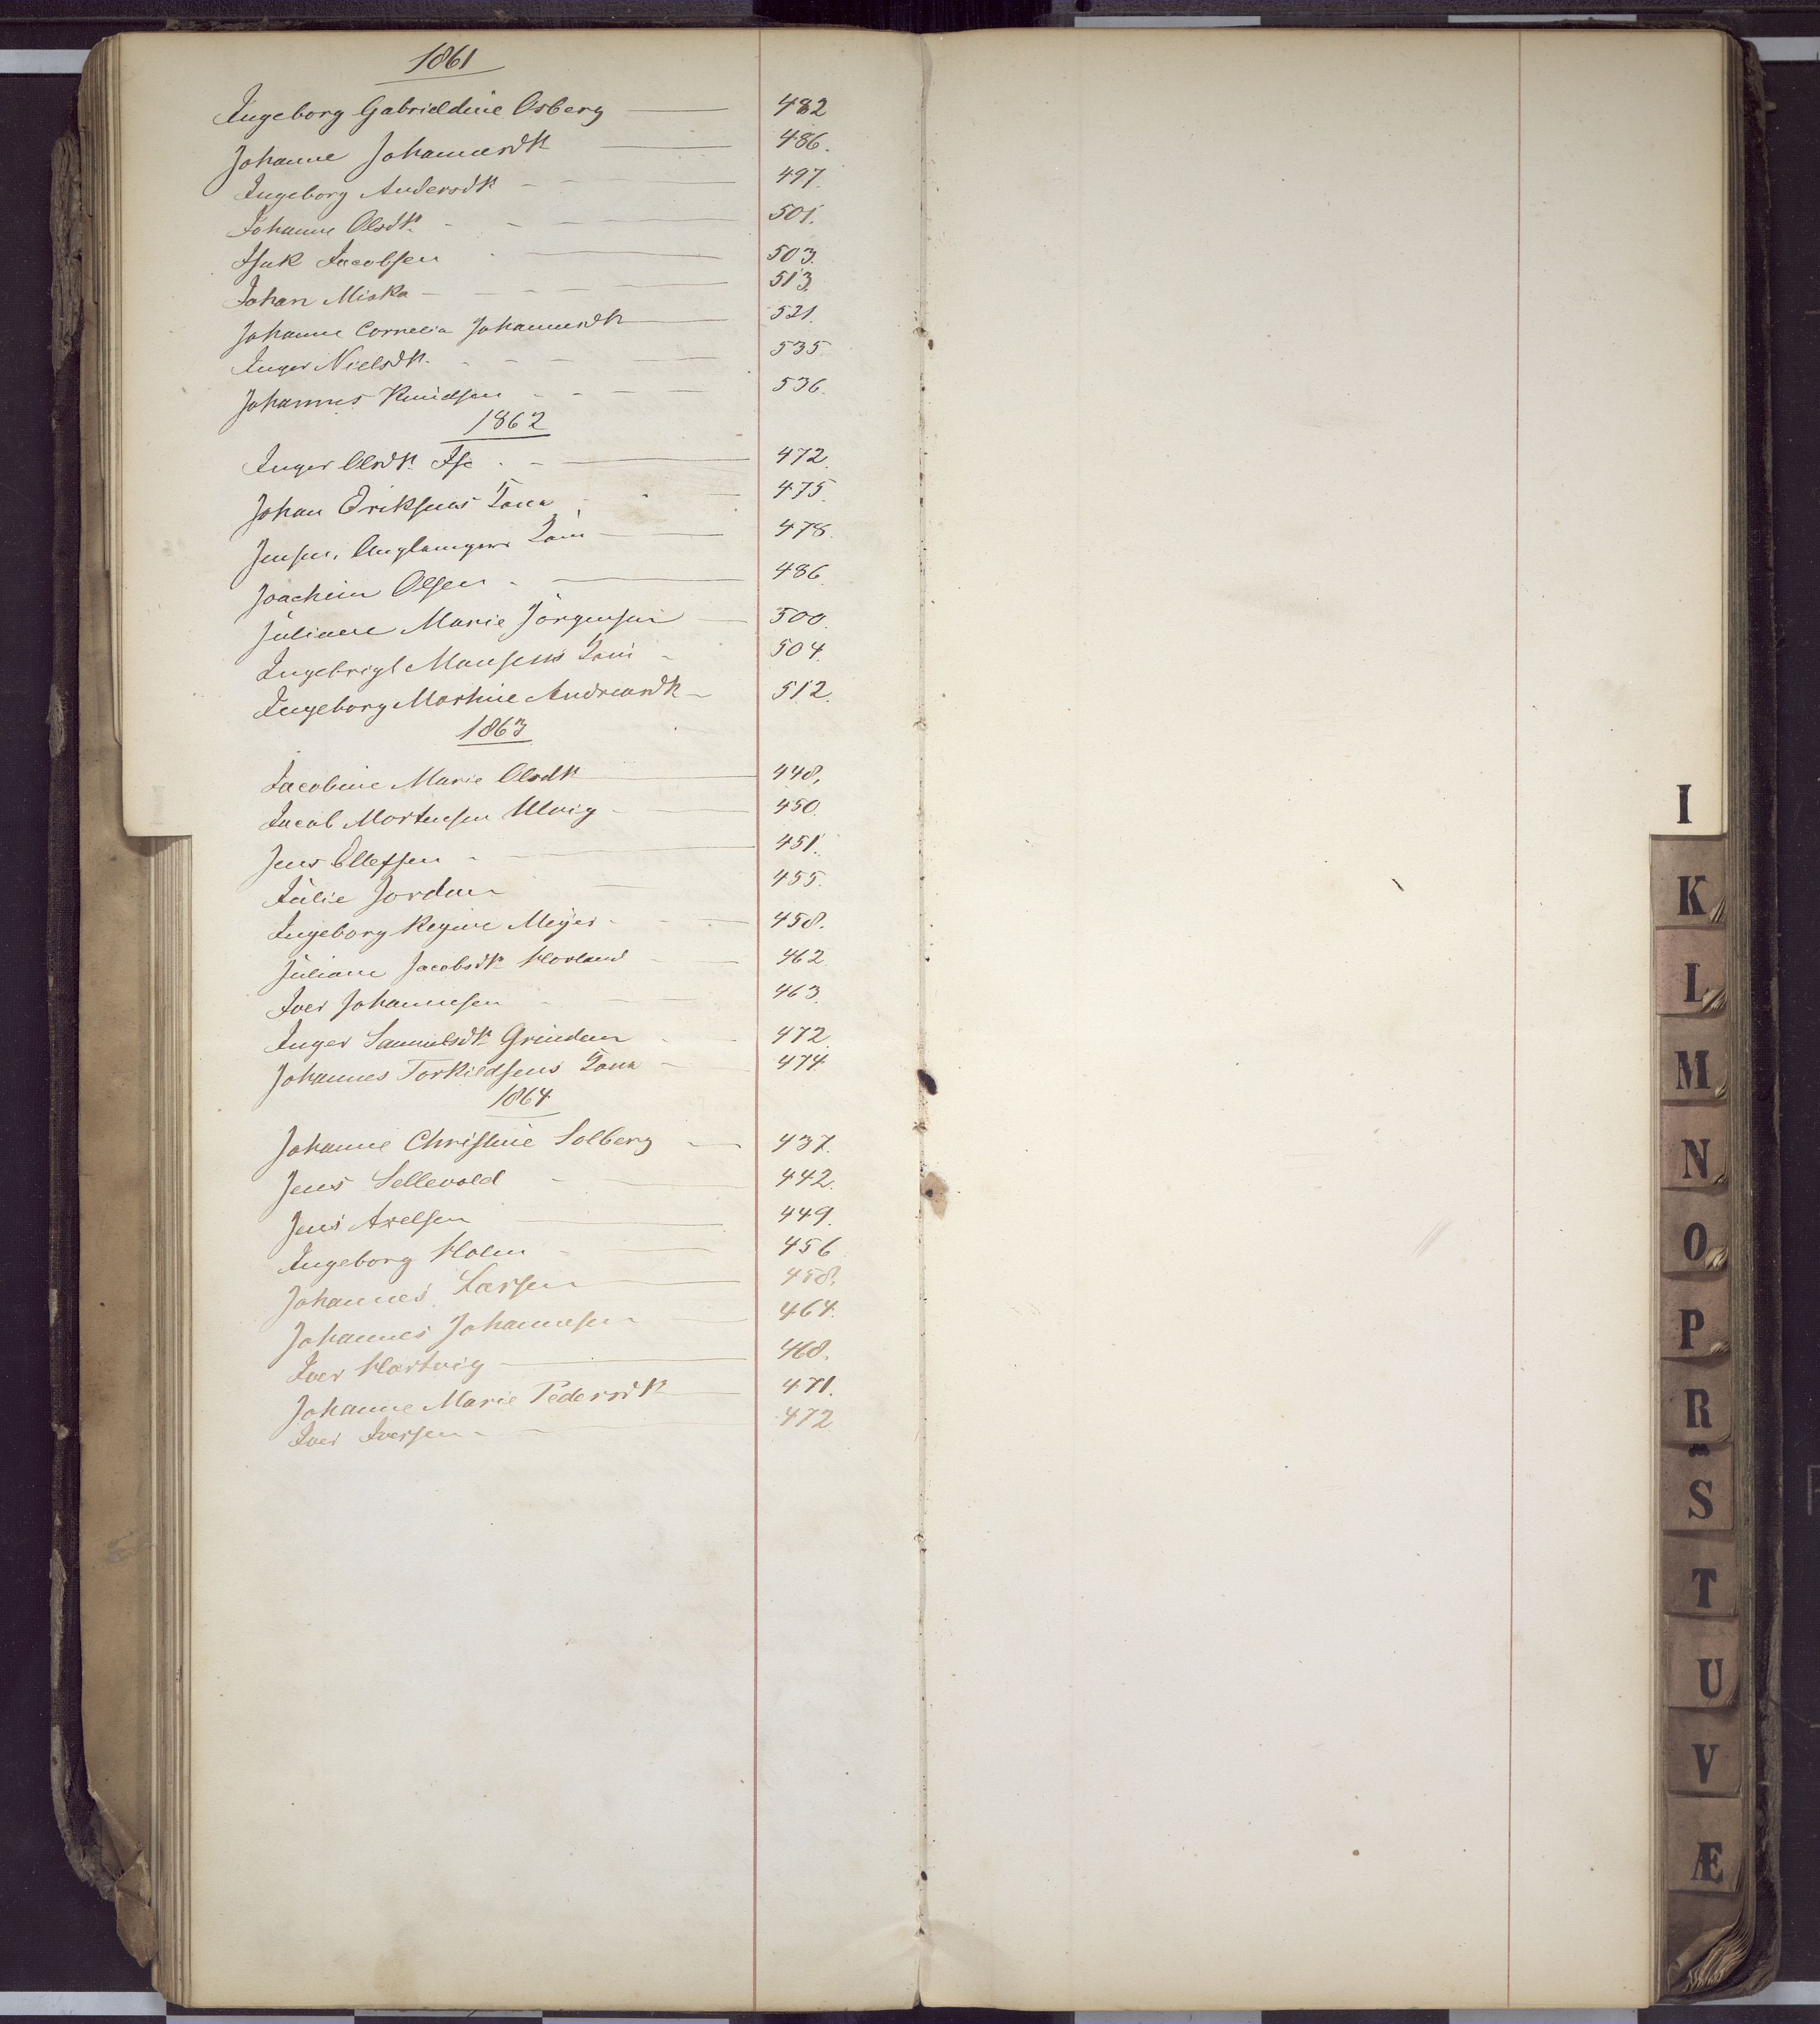 1861
Ingeborg Gabrieldine Osberg 482
Johanne Johannesdtr 486.
Ingeborg Andersdtr 497.
Johanne Olsdtr. 501.
Isak Jacobsen 503.
Johan Miska 513.
Johanne Cornelia Johannesdtr 521.
Inger Nielsdtr. 535.
Johannes Knudsen 536.
1862
Inger Olsdtr. 472.
Johan Eriksens 475.
Jensen, 478.
Joachim Olsen 486.
Juliane Marie Jörgensen 500.
Ingebrigt Monsens 504.
Ingeborg Martine Andreasdtr 512.
1863
Jacobine Marie Olsdtr 448.
Jacob Mortensen Ulvig 450.
Jens Ellefsen 451.
Julie Jordan 455.
Ingeborg Regine Meyer 458.
Juliane Jacobsdtr Hovland 462
Iver Johannesen 463.
Inger Samuelsdtr 472.
Johannes Torkildsens 474
1864
Johanne Christine Solberg 437.
Jens Sellevold 442.
Jens Axelsen 449.
Ingeborg Holm 456
Johannes Larsen 458.
Johannes Johannesen 464.
Iver Hartvig 468.
Johanne Marie Pedersdtr 471.
Iver Iversen 472
I
K
L
M
N
O
P
R
S
T
U
V
Æ